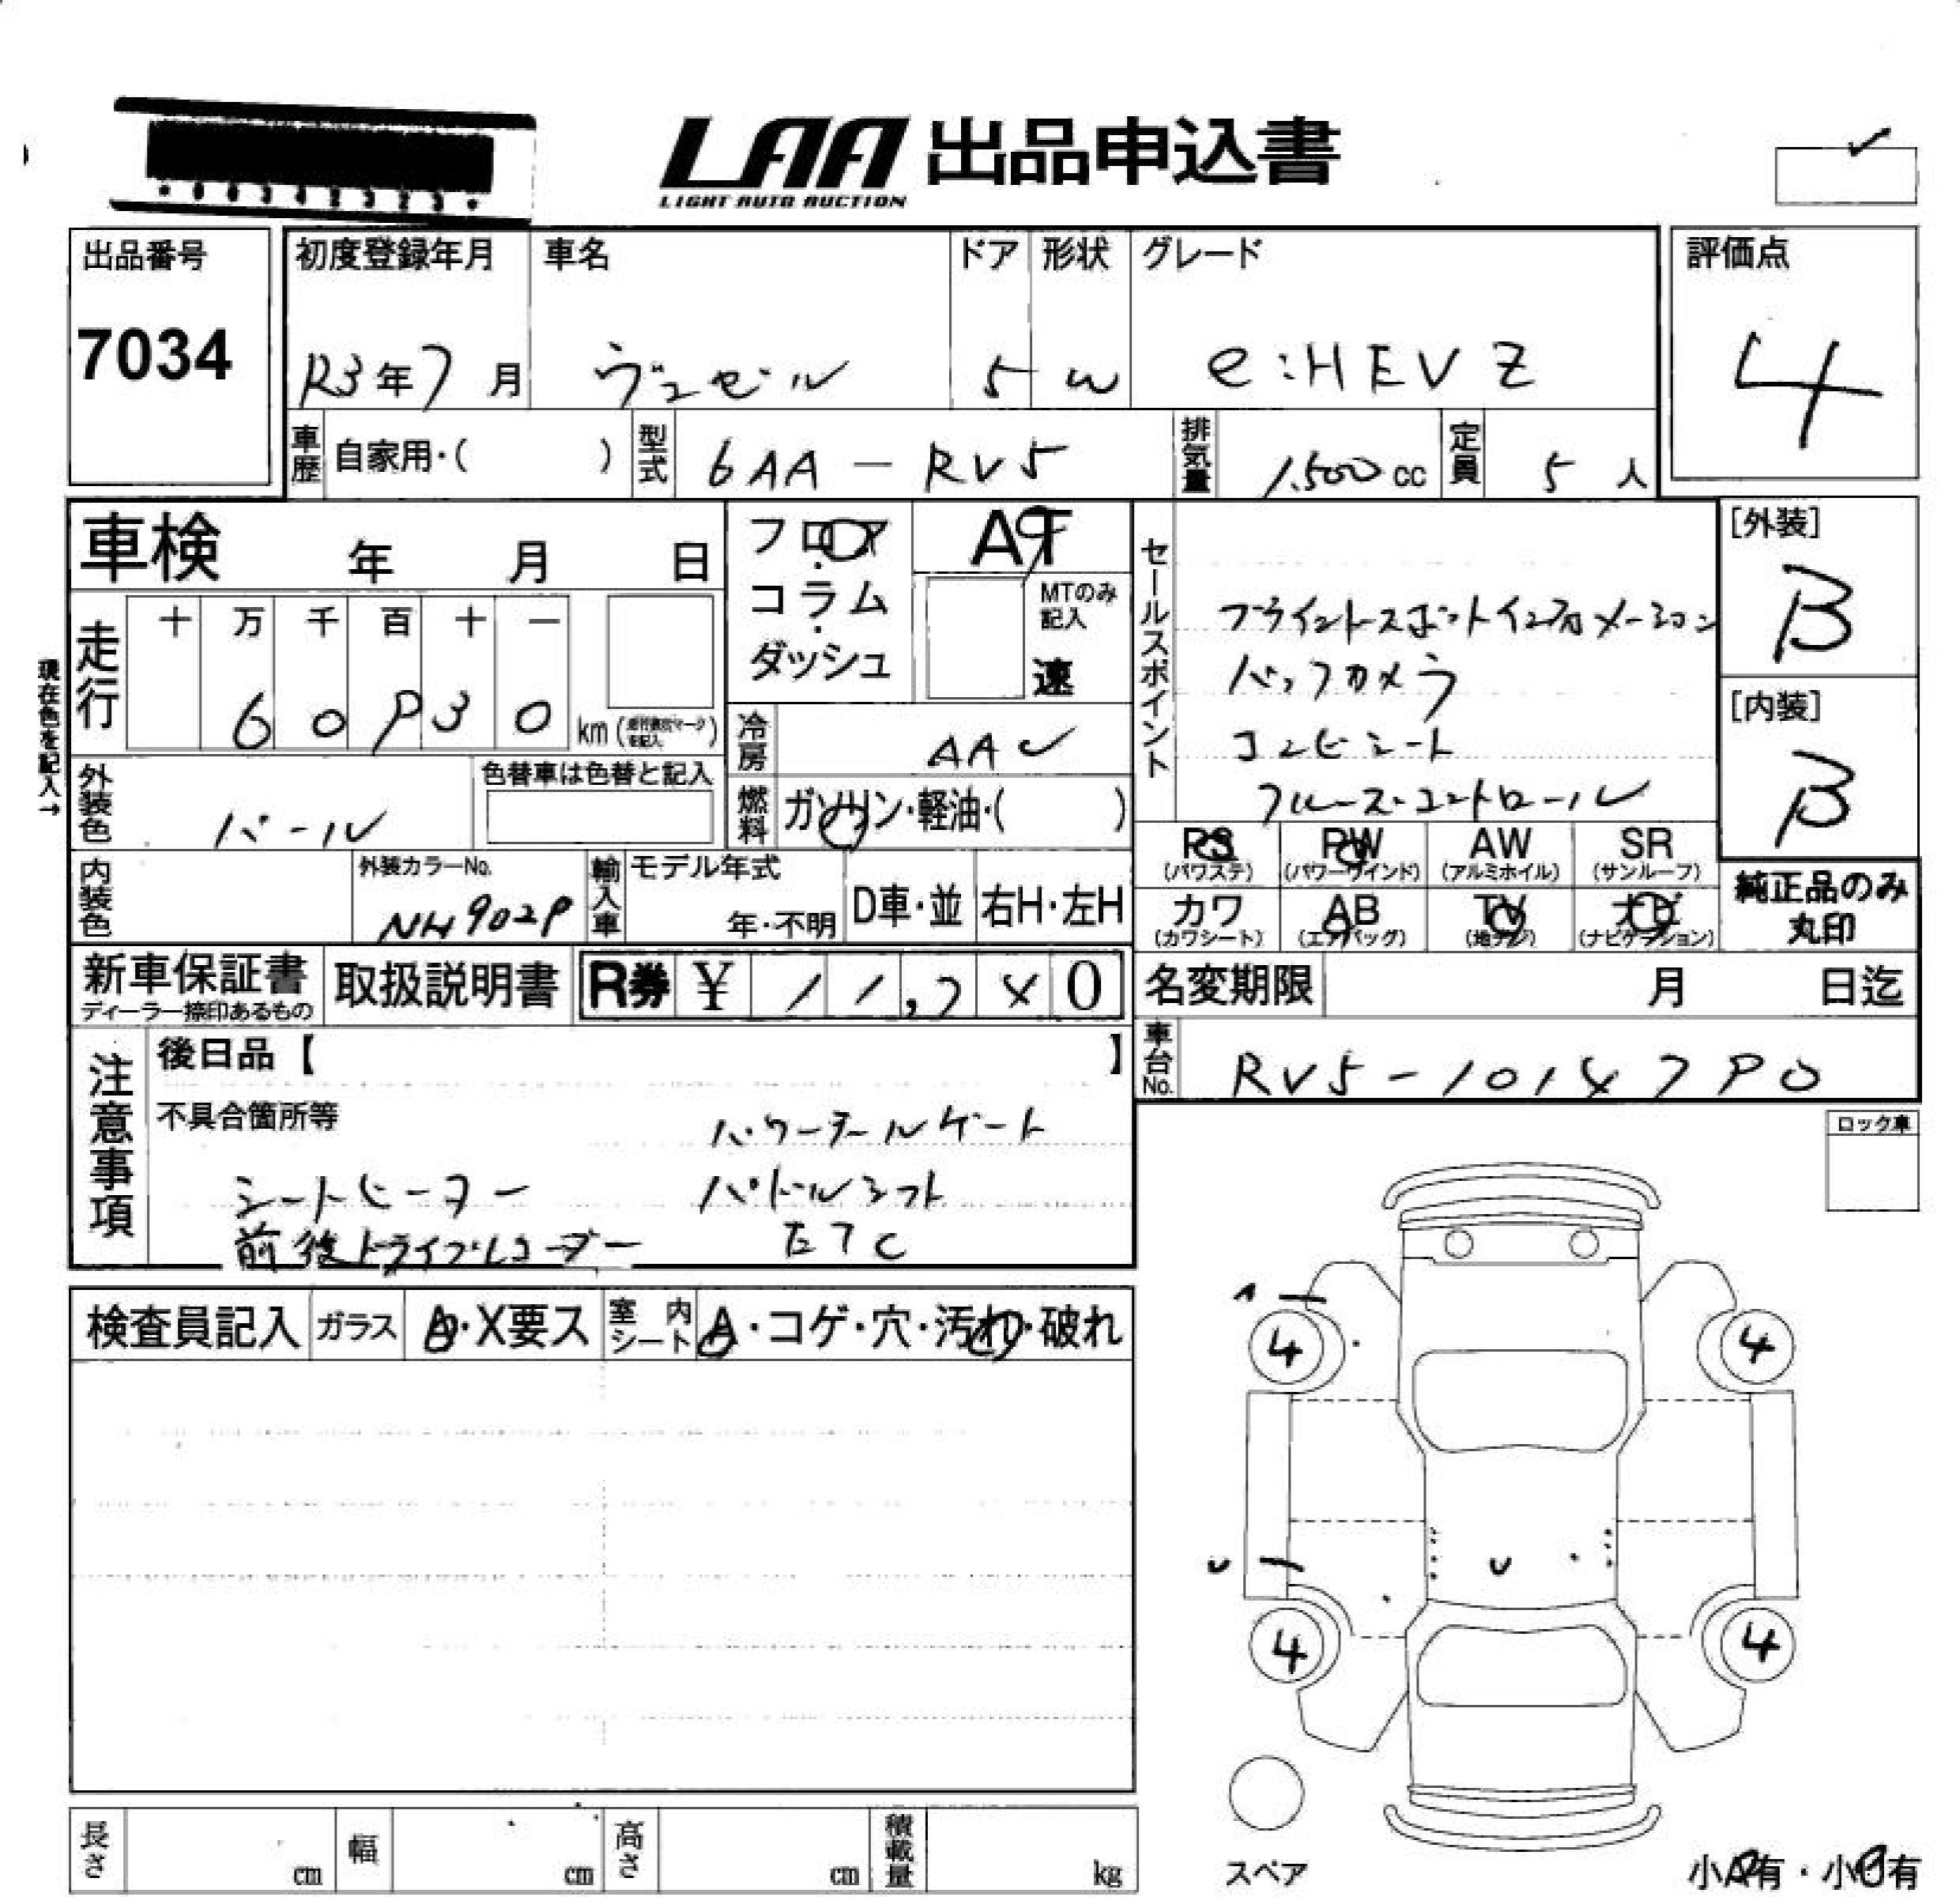 LAA 出品申込書
LIGHT AUTO AUCTION
出品番号
7034
初度登録年月 車名 ドア 形状 グレード
R3年7月 ヴェゼル 5 W e:HEV Z
評価点
4
車歴 自家用・( ) 型式 6AA-RV5 排気量 1,500cc 定員 5人
車検 年 月 日
フロア・コラム・ダッシュ
AT
MTのみ記入
速
セールスポイント
ブラインドスポットインフォメーション
バックカメラ
コンビシート
クルーズコントロール
[外装]
B
[内装]
B
現在色を記入→
走行 十 万 千 百 十 一
km
冷房 AAC
外装色 パール
色替車は色替と記入
燃料 ガソリン・軽油・( )
PS (パワステ) PW (パワーウインド) AW (アルミホイル) SR (サンルーフ)
カワ (カワシート) AB (エアバッグ) TV (地デジ) ナビ (ナビゲーション)
純正品のみ丸印
内装色
外装カラーNo.
NH902P
輸入車 モデル年式 年・不明 D車・並 右H・左H
新車保証書
ディーラー捺印あるもの
取扱説明書
R券 ¥
名変期限 月 日迄
車台No.
注意事項
後日品【 】
不具合箇所等
パワーテールゲート
シートヒーター パドルシフト
前後ドライブレコーダー ETC
ロック車
検査員記入 ガラス A・X要ス 室内シート A・コゲ・穴・汚れ・破れ
4 4
4 4
スペア
小A有・小B有
長さ cm 幅 cm 高さ cm 積載量 kg